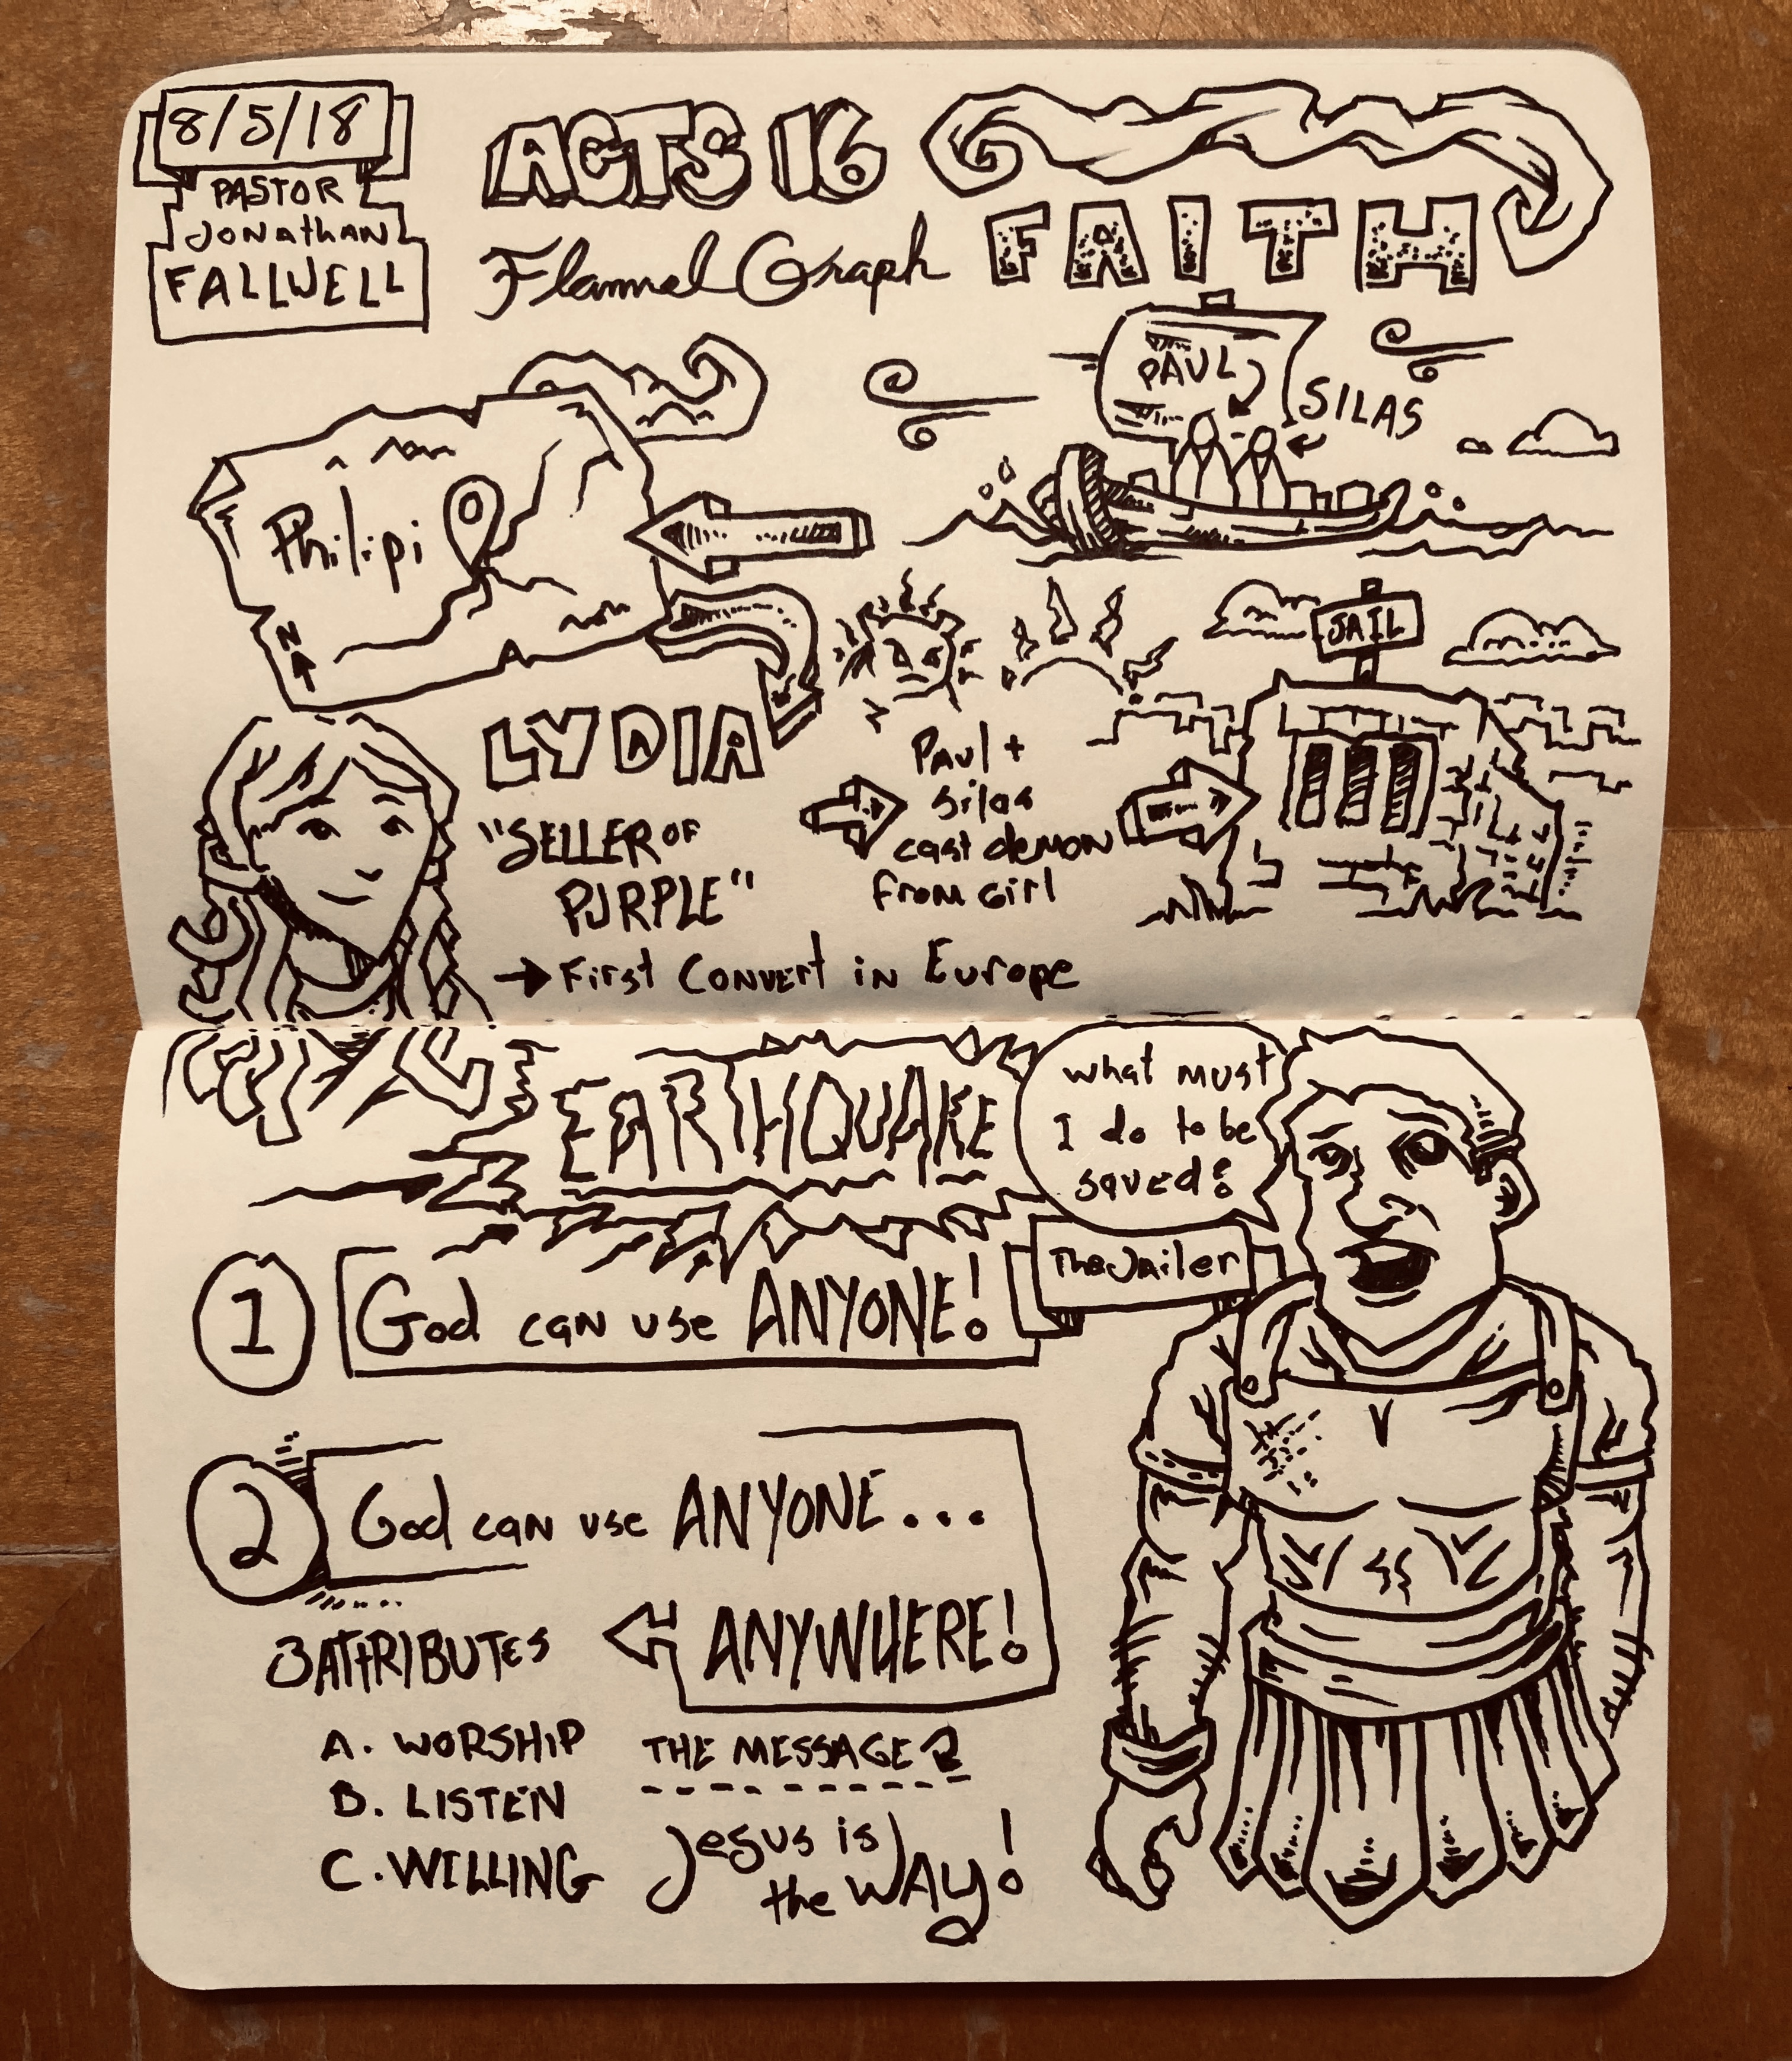 8/5/18
PASTOR
Jonathan
FALLWELL
ACTS 16
Flannel Graph FAITH
PAUL
SILAS
Philipi
N
LYDIA
"SELLER OF
PURPLE"
→ First Convert in Europe
Paul +
silas
cast demon
from girl
JAIL
EARTHQUAKE
what must
I do to be
saved?
The Jailer
1 God can use ANYONE!
2 God can use ANYONE...
ANYWHERE!
3 ATTRIBUTES
A. WORSHIP
B. LISTEN
C. WILLING
THE MESSAGE?
Jesus is
the WAY!